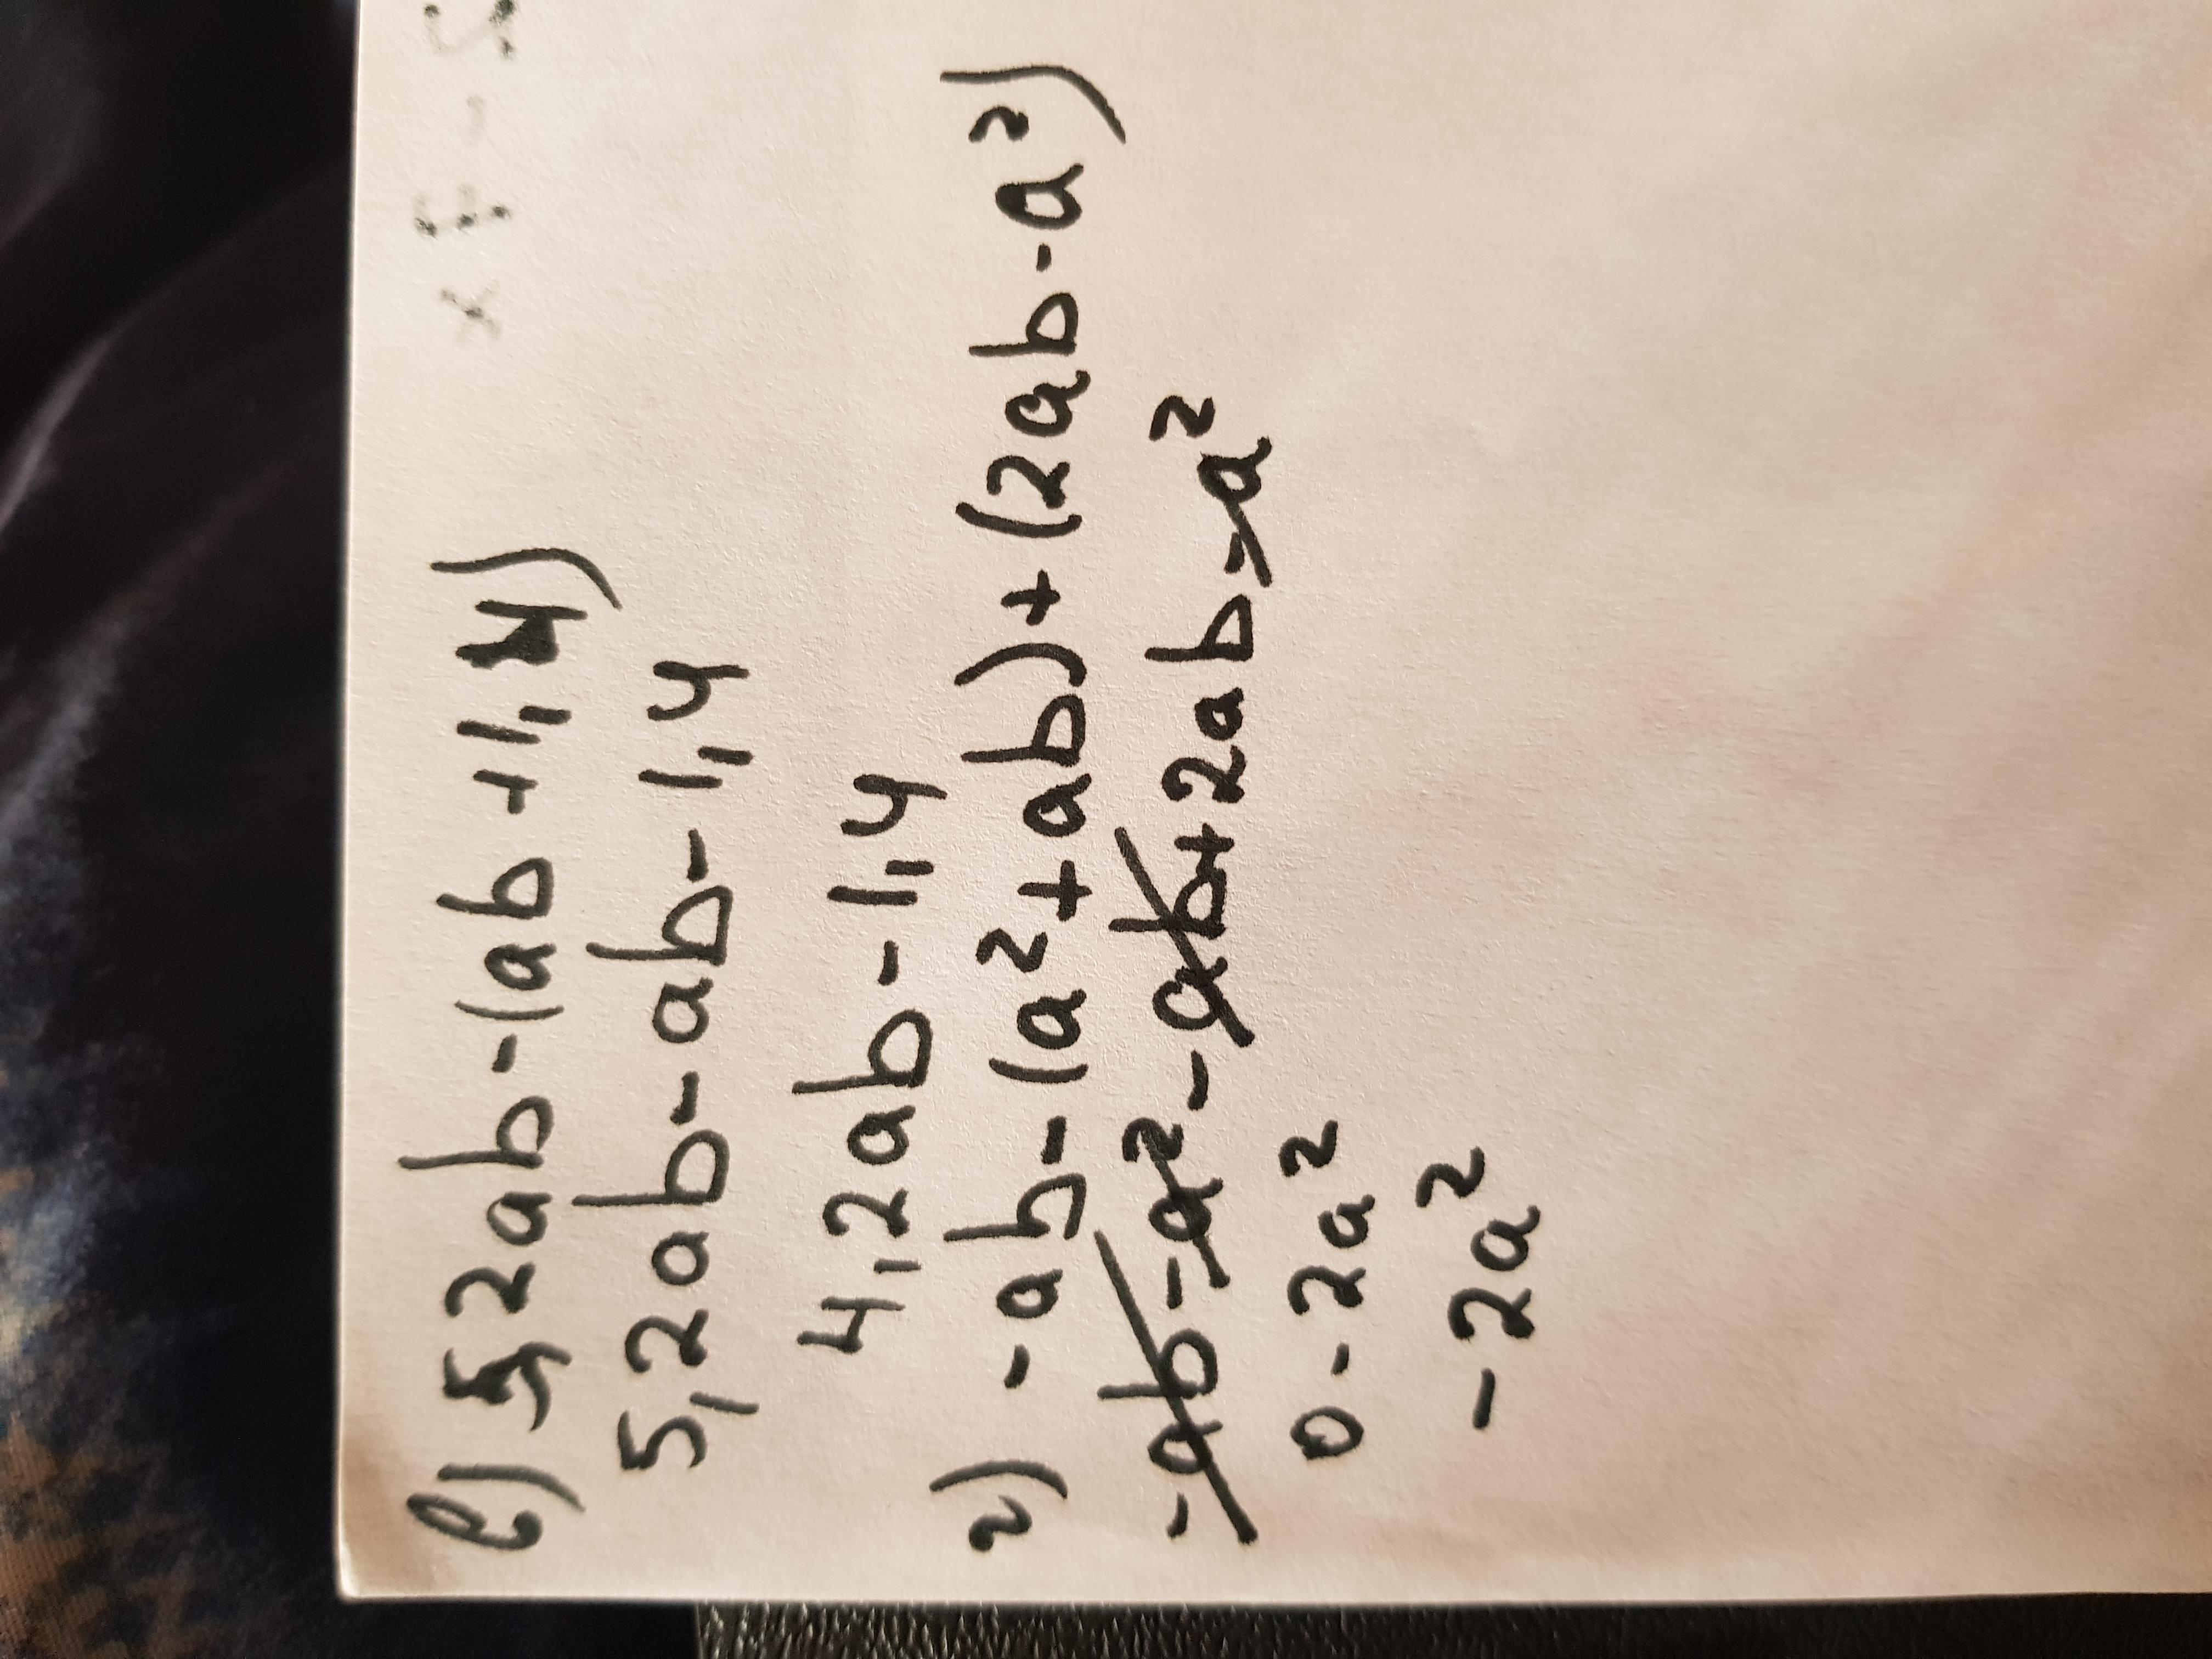 в) 5,2ab-(ab+1,4)
5,2ab-ab-1,4
4,2ab-1,4
г) -ab-(a²+ab)+(2ab-a²)
-ab-a²-ab+2ab-a²
0-2a²
-2a²